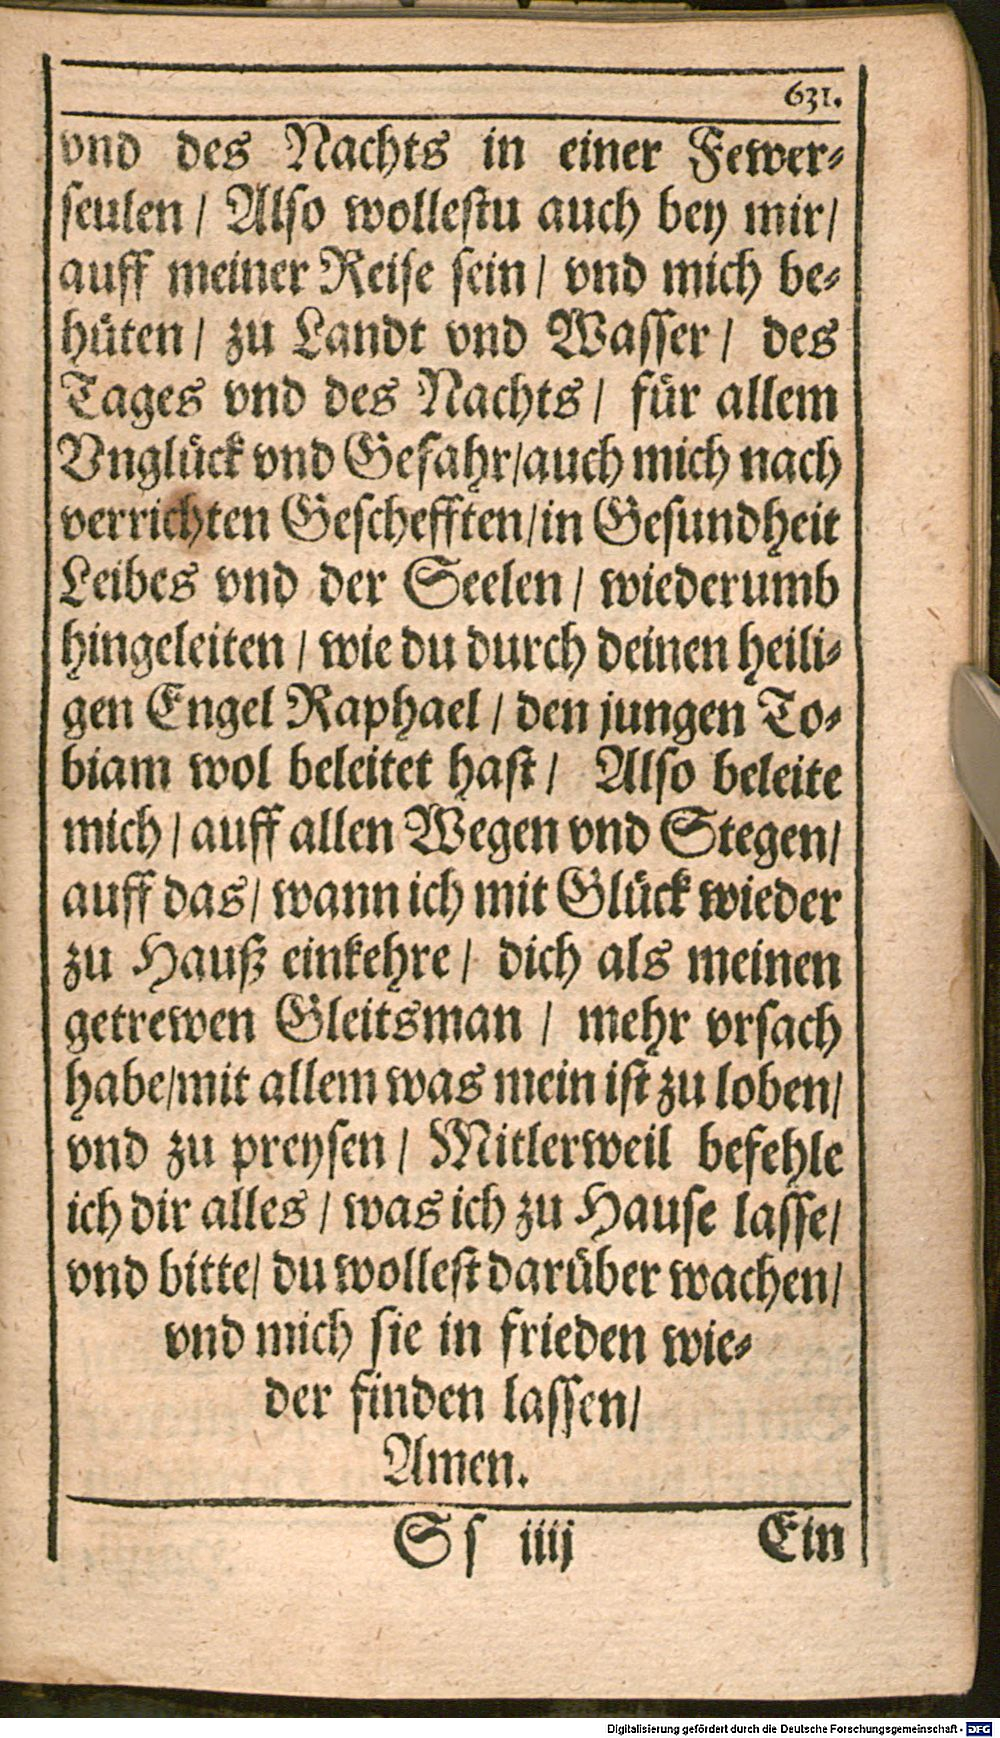 631.
vnd des Nachts in einer Fewer-
seulen / Also wollestu auch bey mir /
auff meiner Reise sein / vnd mich be-
hüten / zu Landt vnd Wasser / des
Tages vnd des Nachts / für allem
Vnglück vnd Gefahr / auch mich nach
verrichten Geschefften / in Gesundheit
Leibes vnd der Seelen / wiederumb
hingeleiten / wie du durch deinen heili-
gen Engel Raphael / den jungen To-
biam wol beleitet hast / Also beleite
mich / auff allen Wegen vnd Stegen /
auff das / wann ich mit Glück wieder
zu Hauß einkehre / dich als meinen
getrewen Gleitsman / mehr vrsach
habe / mit allem was mein ist zu loben /
vnd zu preysen / Mitlerweil befehle
ich dir alles / was ich zu Hause lasse /
vnd bitte / du wollest darüber wachen /
vnd mich sie in frieden wie-
der finden lassen /
Amen.
Ss iiij Ein
Digitalisierung gefördert durch die Deutsche Forschungsgemeinschaft - DFG